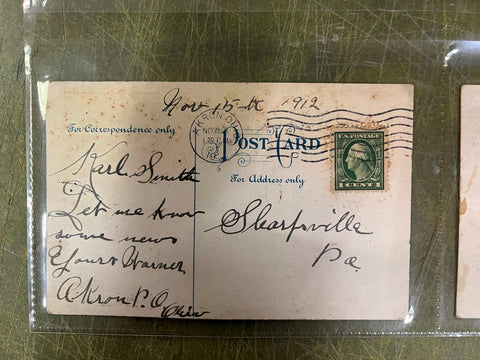 Nov 15th 1912
AKRON, OH
NOV
For Correspondence only
POST CARD
U.S. POSTAGE
1 CENT 1
For Address only
Karl Smith
Let me know
some news
Yours Warner
Akron P.O.
Ohio
Sharpsville
Pa